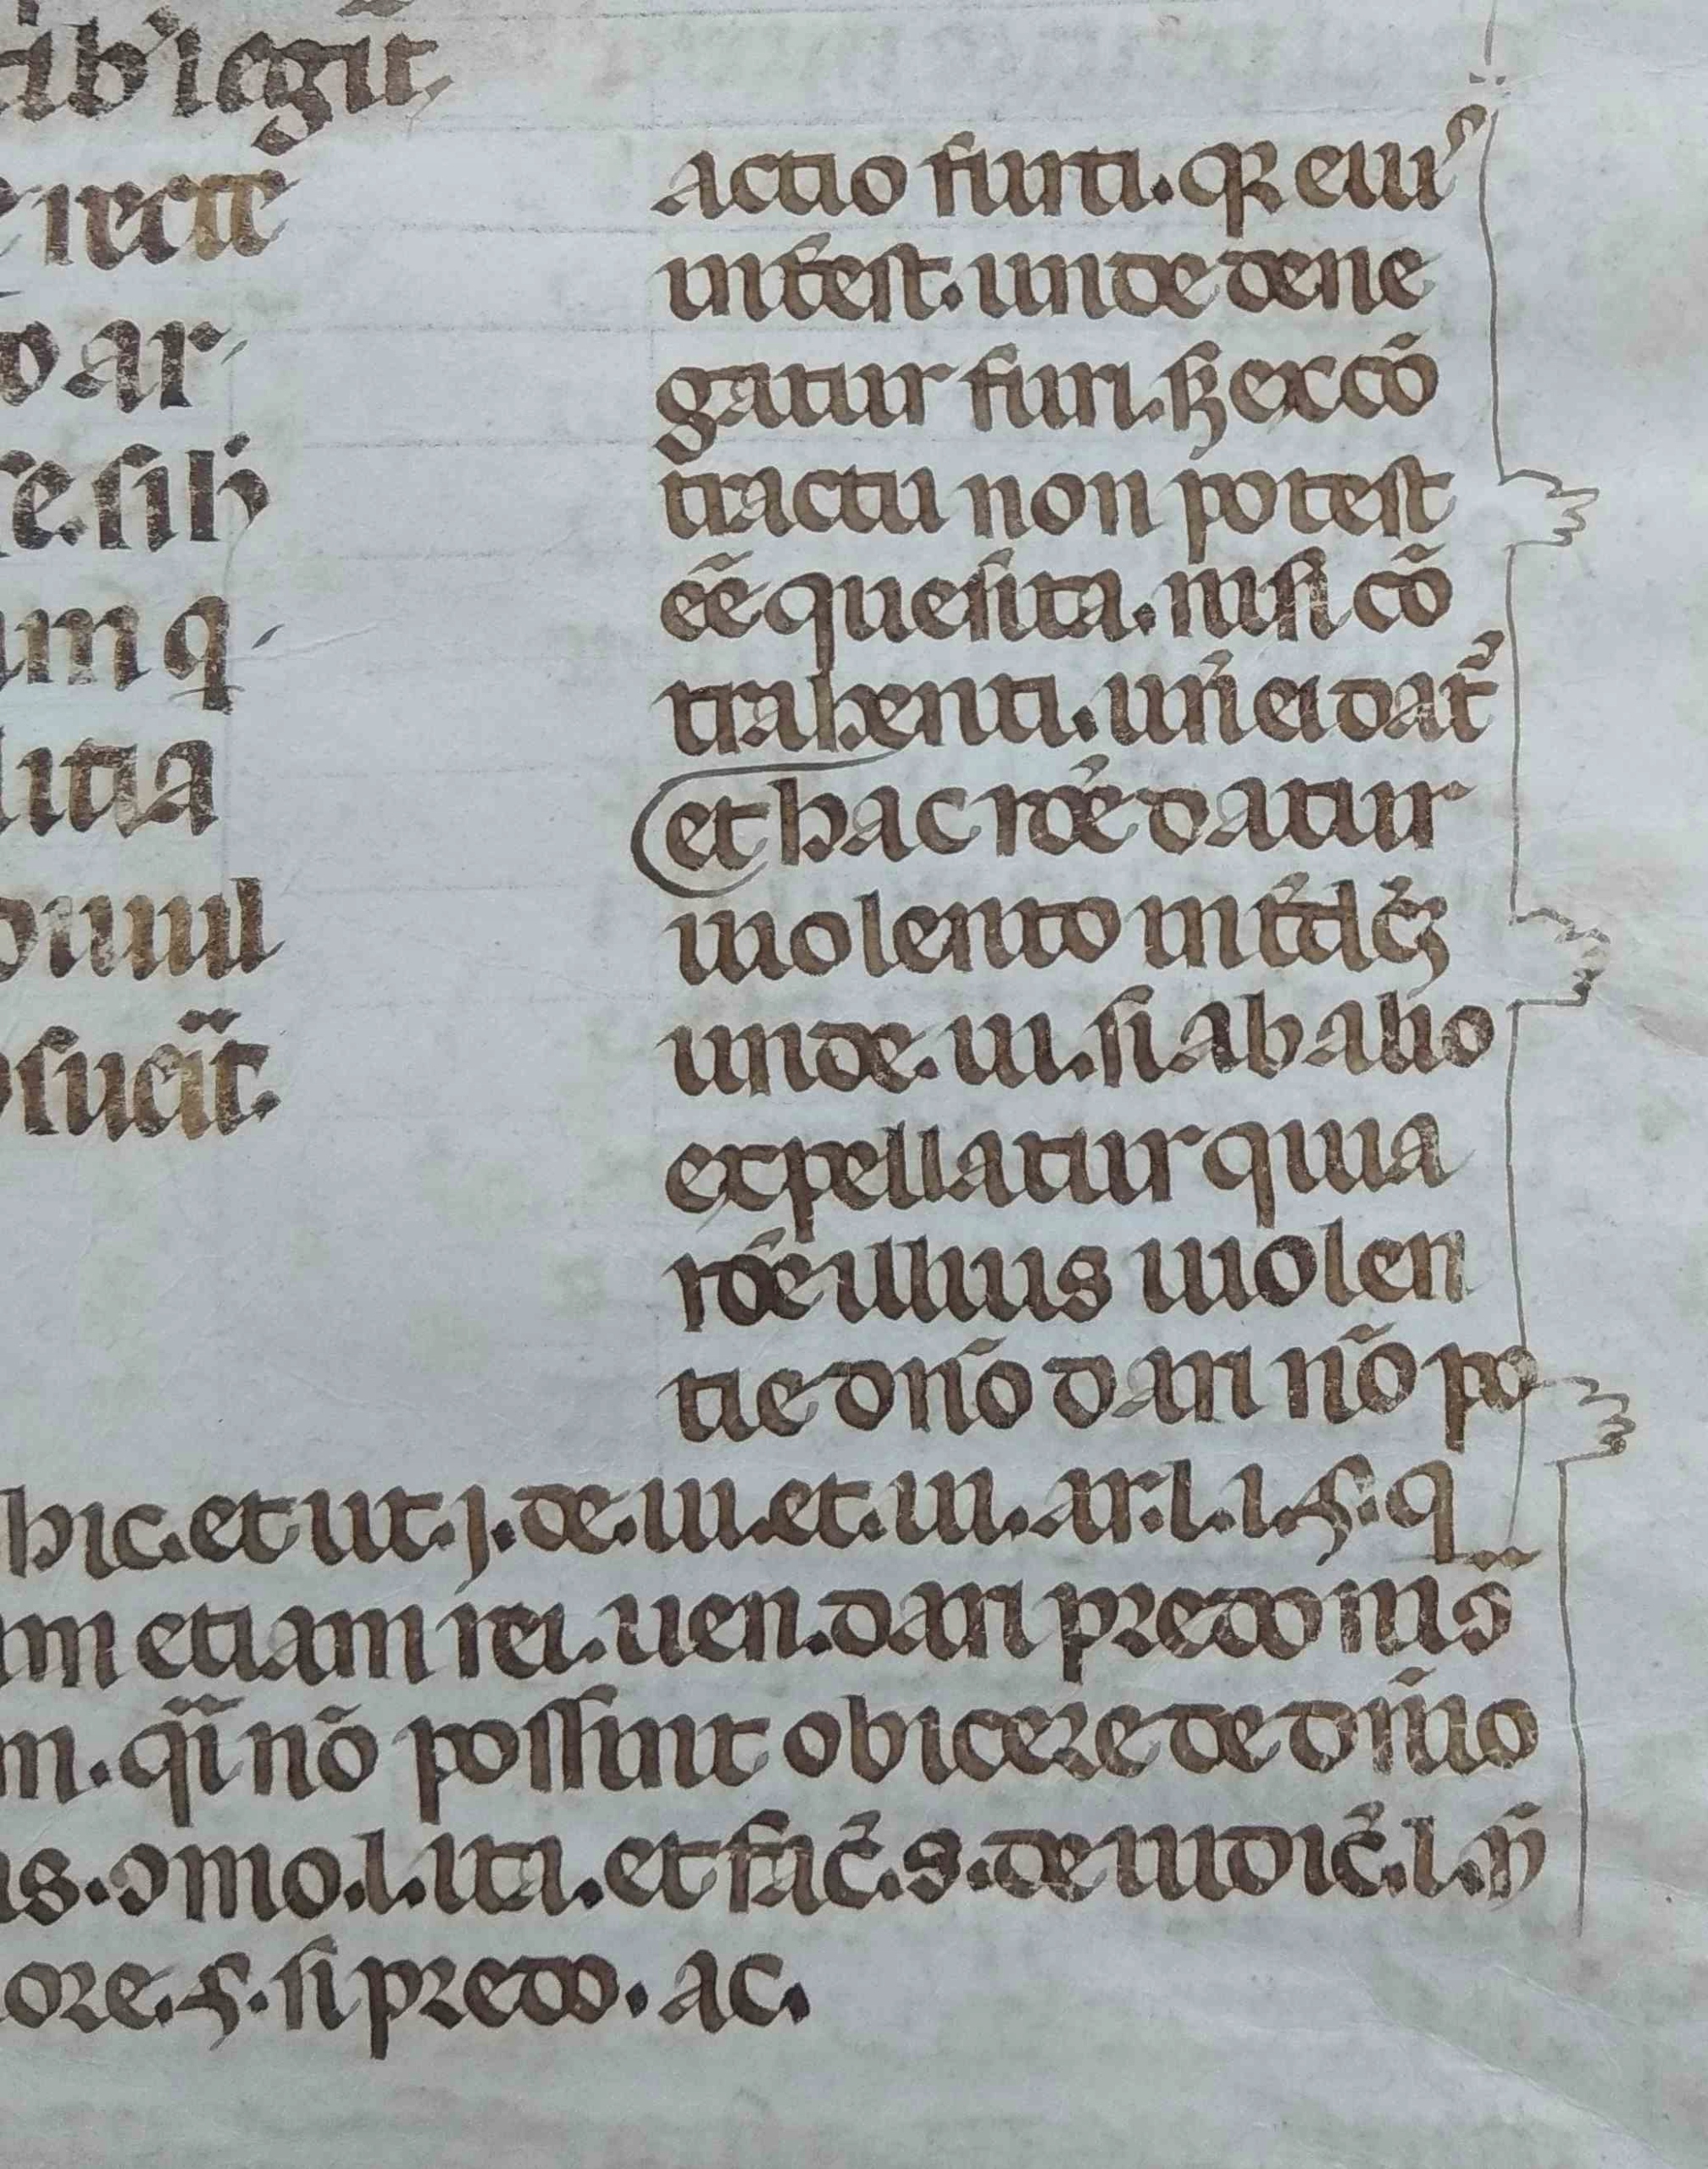 ib' legūt.
recte
ar
re. sil'r
um q
litia
duuul
sucīt.
actio furti. qꝛ eiu'
intʼest. unde dene
gatur furi. sꝫ ex cō
tractu non potest
eē quesita. nisi cō
trahenti. uñ ei datʼ
et hac rōe datur
uiolento intʼdcʼꝫ
unde. ui. si ab alio
expellatur quia
rōe illius uiolen
tie dño dari nō po
hic. et ut. j. de. ui. et. ui. ar. l. i. §. q
m etiam rei. uen. dari predonis̄
m. qī nō possunt obicere de dñio
s. ɔmo. l. iti. et facʼ. s. de iudicʼ. l. ñ
ore. §. si predo. ac.